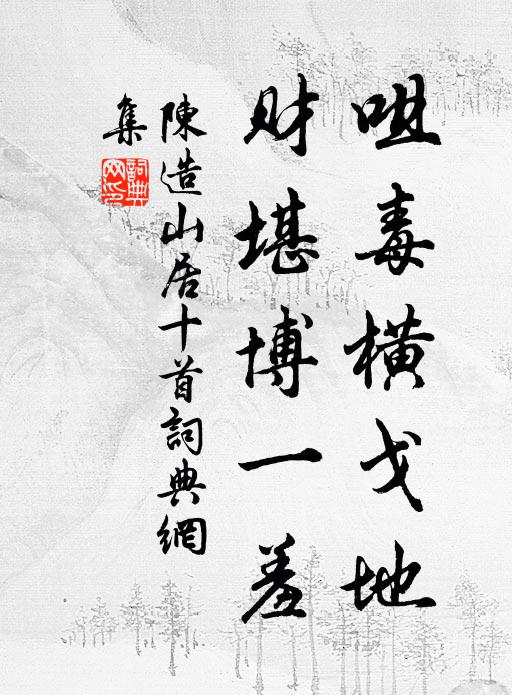 咀毒橫戈地
财堪博一羞
陳造山居十首詞典網
集
詞典网印